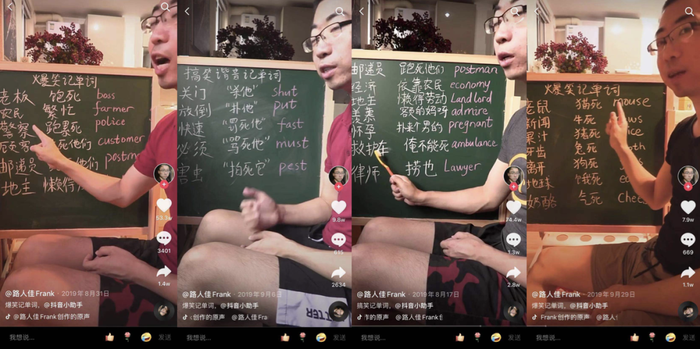 爆笑记单词
老板 boss
农民 繁忙 farmer
警察 跑累死 police
死他们 customer
他们 postm
地主 懒得
63.3w
3401
1.4w
@路人佳Frank · 2019年8月31日
爆笑记单词。@抖音小助手
@路人佳Frank创作的原声
我想说...
发送
搞笑谐音记单词
关门 shut
放倒 "扑他" put
快速 "罚死他" fast
必须 "骂死他" must
害虫 "拍死它" pest
9.8w
2634
@路人佳Frank · 2019年9月6日
爆笑记单词。@抖音小助手
创作的原声 @路人佳Fra
我想说...
发送
邮递员 跑死他们 postman
经济 依靠农民 economy
地主 懒得劳动 Landlord
羡慕 额的妈呀 admire
怀孕 扑来个男的 pregnant
救护车 俺不能死 ambulance
律师 捞也 Lawyer
74.4w
1.3w
2.8w
@路人佳Frank · 2019年8月17日
爆笑记单词。@抖音小助手
作的原声 @路人佳Frank创
我想说...
发送
爆笑记单词
老鼠 猫死 mouse
新闻 牛死 ews
果汁 猪死
牙齿 兔死 ooth
狗死
地球 饿死
奶酪 气死 chee
7.9w
669
1.1w
@路人佳Frank · 2019年9月29日
爆笑记单词。@抖音小助手
Frank创作的原声 @路人
我想说...
发送